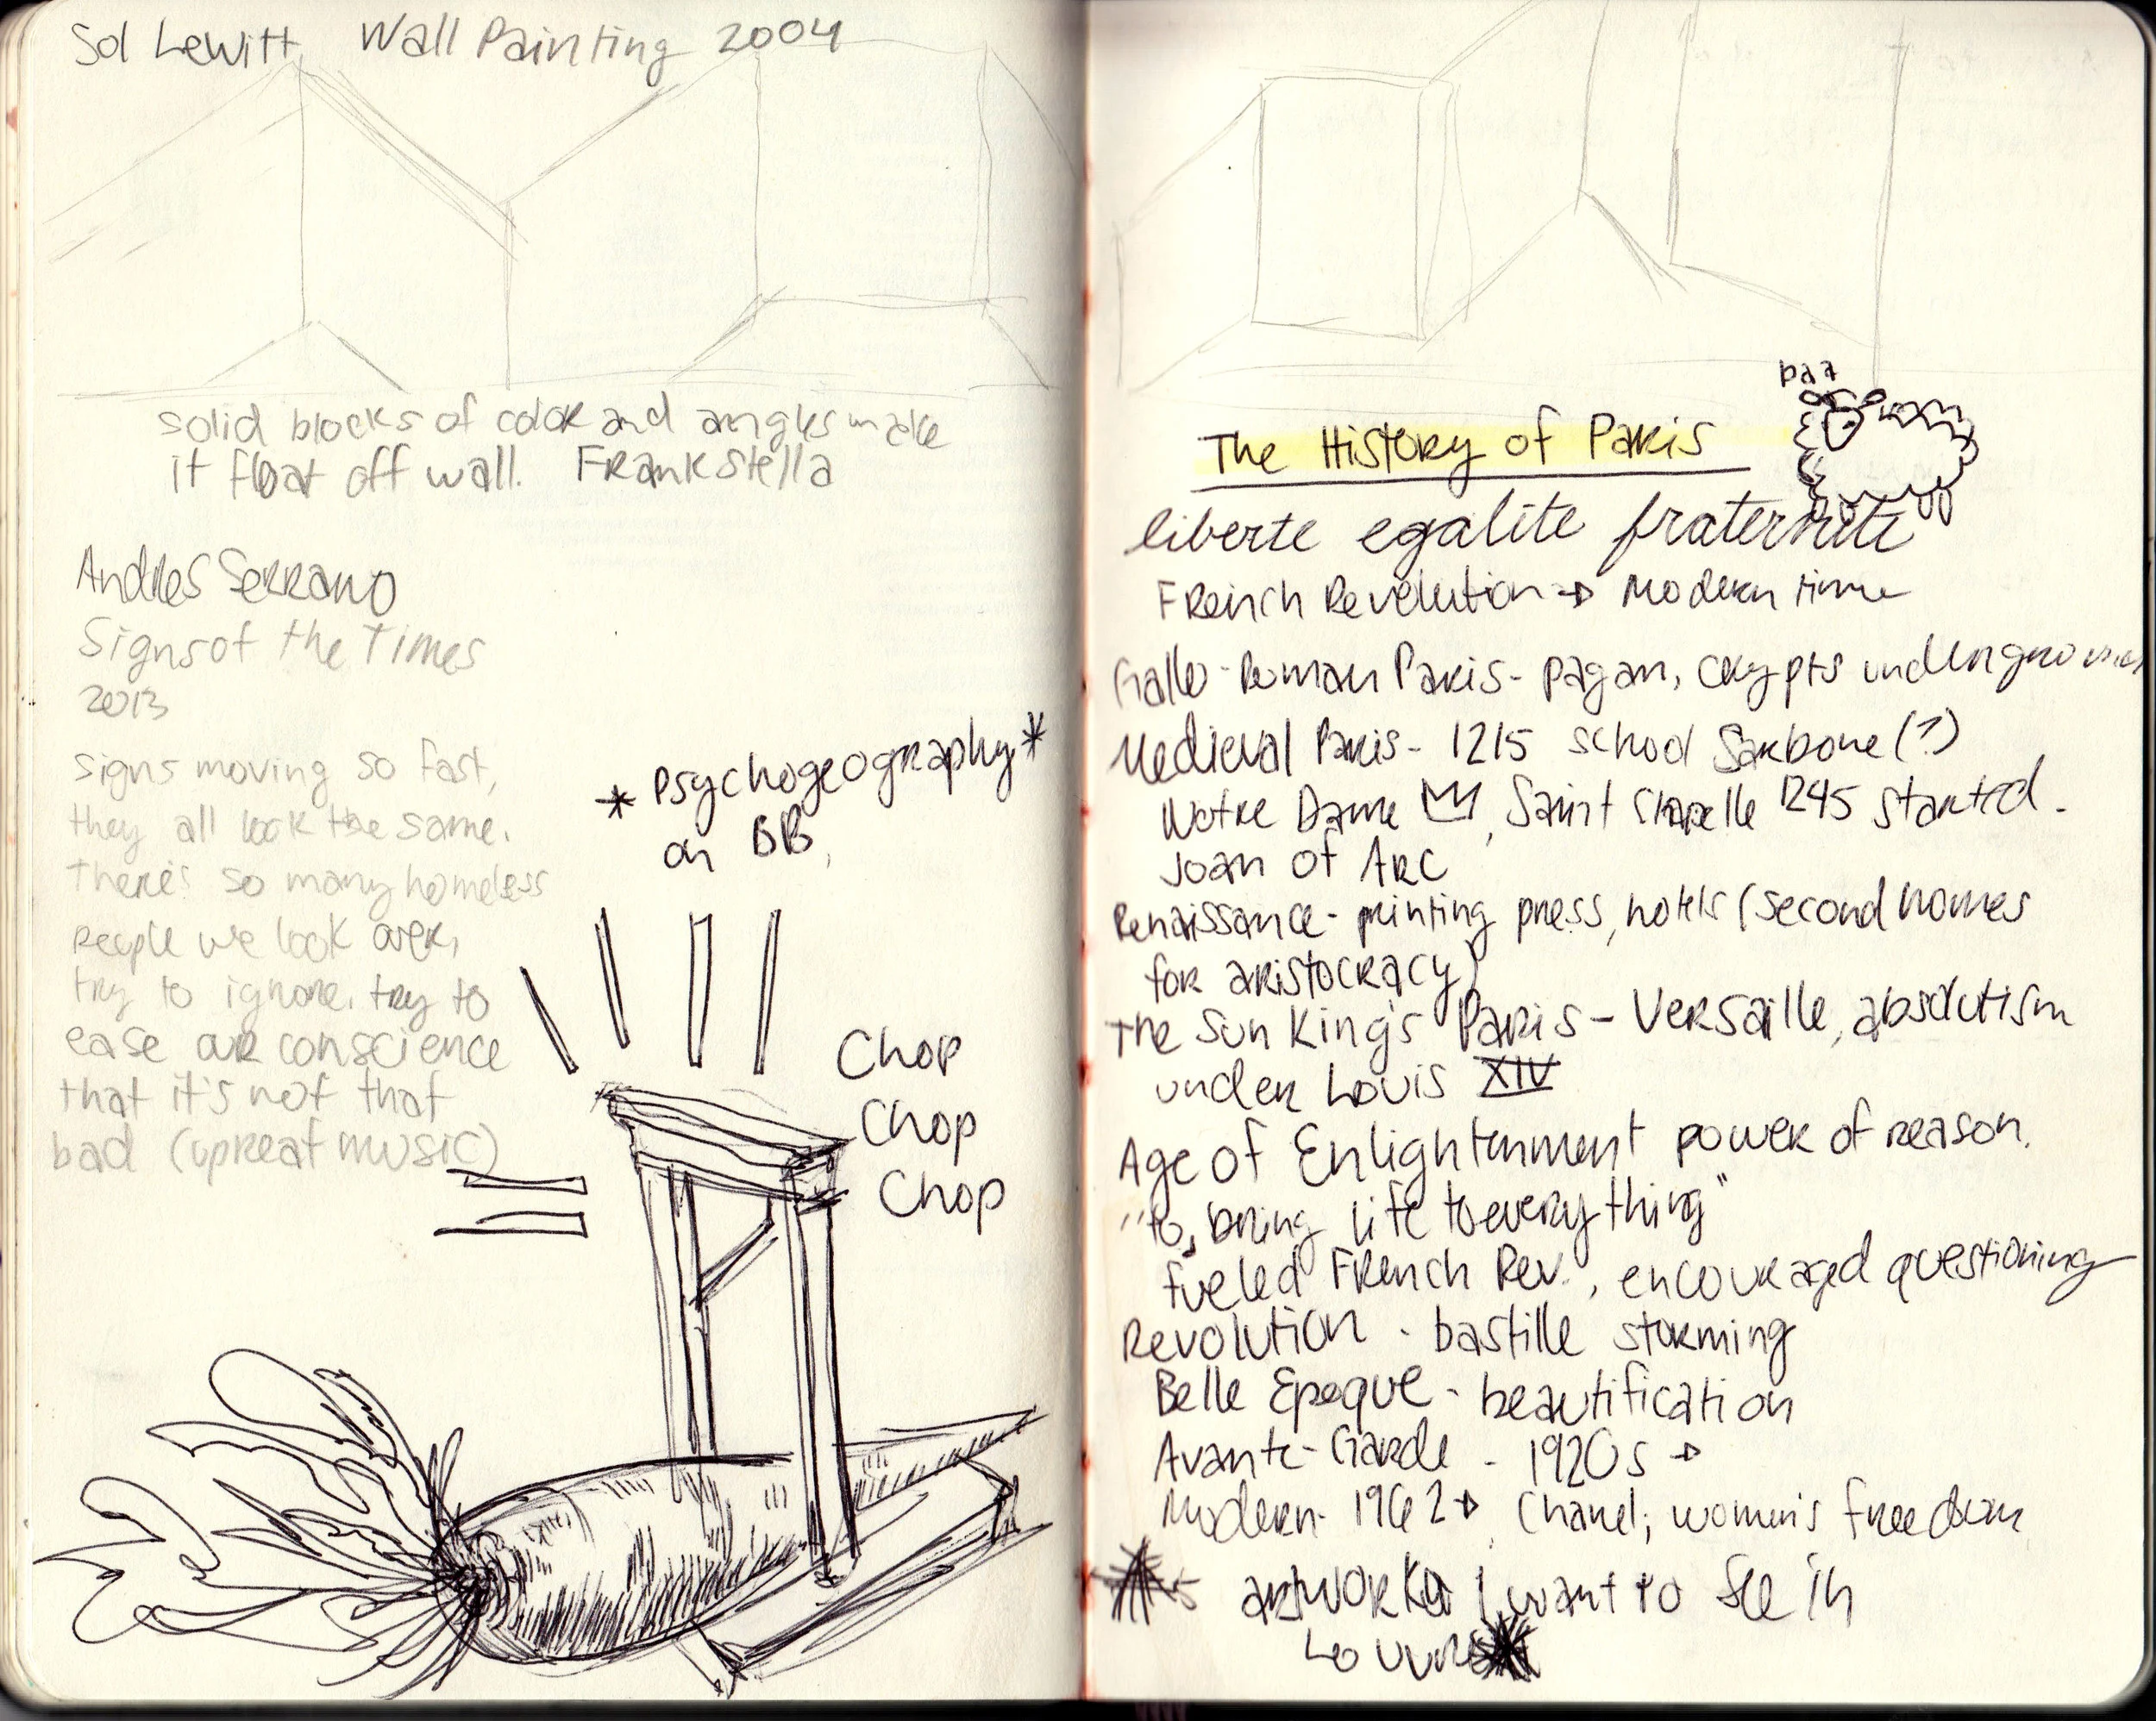 Sol Lewitt, Wall Painting 2004
solid blocks of color and angles make
it float off wall. Frank Stella
Andres Serrano
Signs of the Times
2013
signs moving so fast,
they all look the same.
there's so many homeless
people we look over,
try to ignore, try to
ease our conscience
that it's not that
bad (upbeat music)
* Psychogeography *
on BB,
Chop
Chop
Chop
baa
The History of Paris
liberte egalite fraternite
French Revolution → Modern time
Gallo-Roman Paris - pagan, crypts underground
Medieval Paris - 1215 school Sarbone (?)
Notre Dame, Saint Chapelle 1245 started.
Joan of Arc
Renaissance - printing press, hotels (second homes
for aristocracy)
The Sun King's Paris - Versaille, absolutism
under Louis XIV
Age of Enlightenment power of reason.
"to bring life to everything"
fueled French Rev., encouraged questioning
Revolution - bastille storming
Belle Epoque - beautification
Avante-Garde - 1920s →
Modern - 1962 → Chanel; women's freedom
artwork I want to see in
Louvre